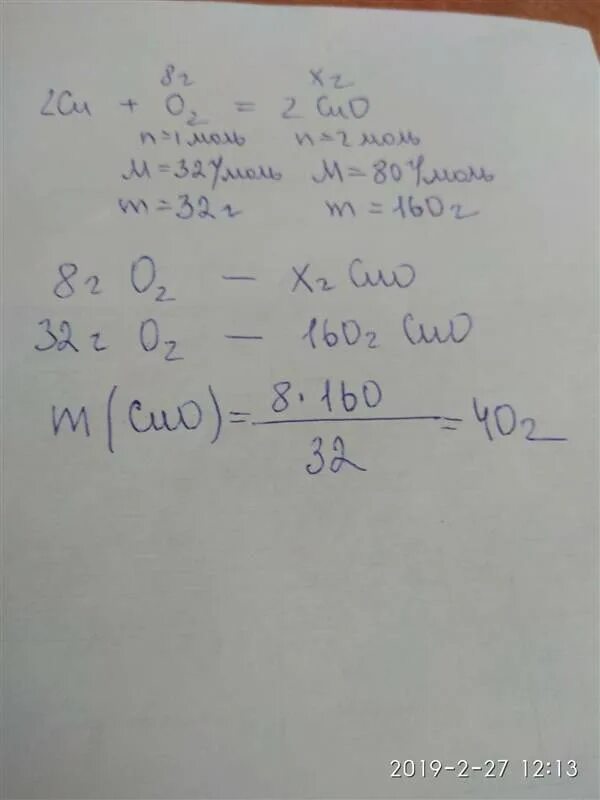 8г хг
2Cu + O₂ = 2 CuO
n=1 моль n=2 моль
M=32г/моль M=80г/моль
m=32г m=160г
8г O₂ — хг CuO
32г O₂ — 160г CuO
m(CuO)= 8·160 / 32 = 40г
2019-2-27 12:13